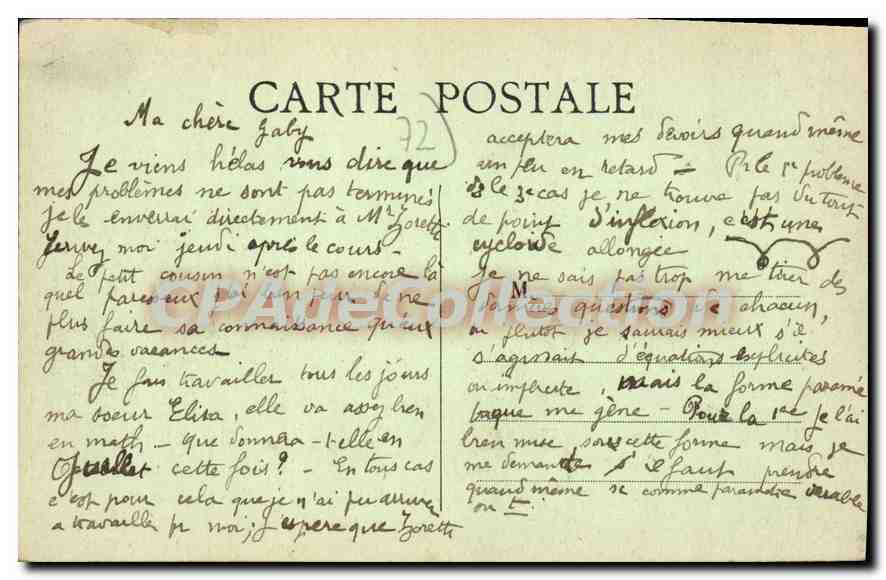 CARTE POSTALE
72
Ma chère Gaby
Je viens hélas vous dire que
mes problèmes ne sont pas terminés
je le enverrai directement à Mr Zoretti
moi jeudi après le cours -
Le petit cousin n'est pas encore là
quel paresseux j'ai bien peur de ne
plus faire sa connaissance qu'aux
grandes vacances
Je fais travailler tous les jours
ma soeur Elisa, elle va assez bien
en math - que donnera-t-elle en
Juillet cette fois ? - En tous cas
c'est pour cela que je n'ai pu arriver
a travailler pr moi; j'espere que Zoretti
acceptera mes devoirs quand même
un peu en retard - Pr le 1er problème
ds le 3e cas je ne trouve pas du tout
de point d'inflexion, c'est une
cycloide allongee
Je ne sais pas trop me tirer des
M
dernieres questions de chacun,
ou plutot je saurais mieux s'il
s'agissait d'équations explicites
ou implicite, mais la forme paramé
trique me gène - Pour la 1ere je l'ai
bien mise sous cette forme mais je
me demande s'il faut prendre
quand même x comme variable
ou t
CPAdeCollection